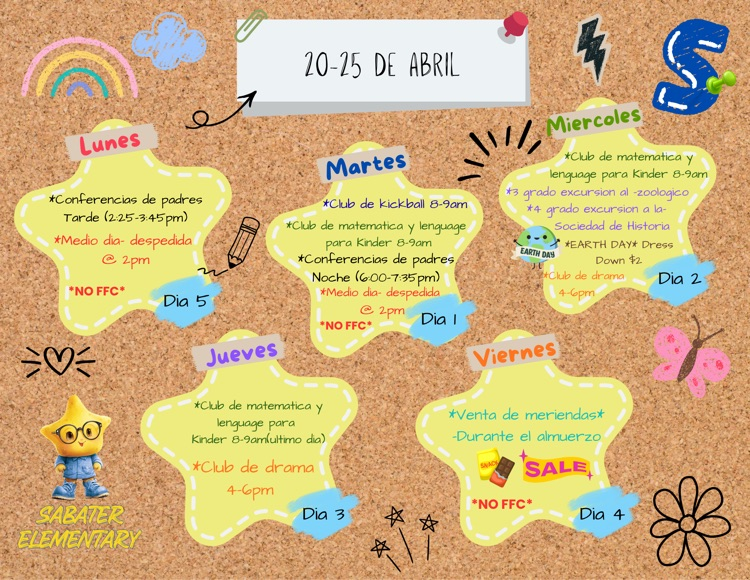 20-25 DE ABRIL
Lunes
*Conferencias de padres
Tarde (2:25-3:45pm)
*Medio dia- despedida
@ 2pm
*NO FFC*
Dia 5
Martes
*Club de kickball 8-9am
*Club de matematica y lenguage
para Kinder 8-9am
*Conferencias de padres
Noche (6:00-7:35pm)
*Medio dia- despedida
@ 2pm
*NO FFC*
Dia 1
Miercoles
*Club de matematica y
lenguage para Kinder 8-9am
*3 grado excursion al -zoologico
*4 grado excursion a la-
Sociedad de Historia
*EARTH DAY* Dress
Down $2
EARTH DAY
*Club de drama
4-6pm
Dia 2
Jueves
*Club de matematica y
lenguage para
Kinder 8-9am(ultimo dia)
*Club de drama
4-6pm
Dia 3
Viernes
*Venta de meriendas*
-Durante el almuerzo
SALE
*NO FFC*
Dia 4
S
SABATER
ELEMENTARY